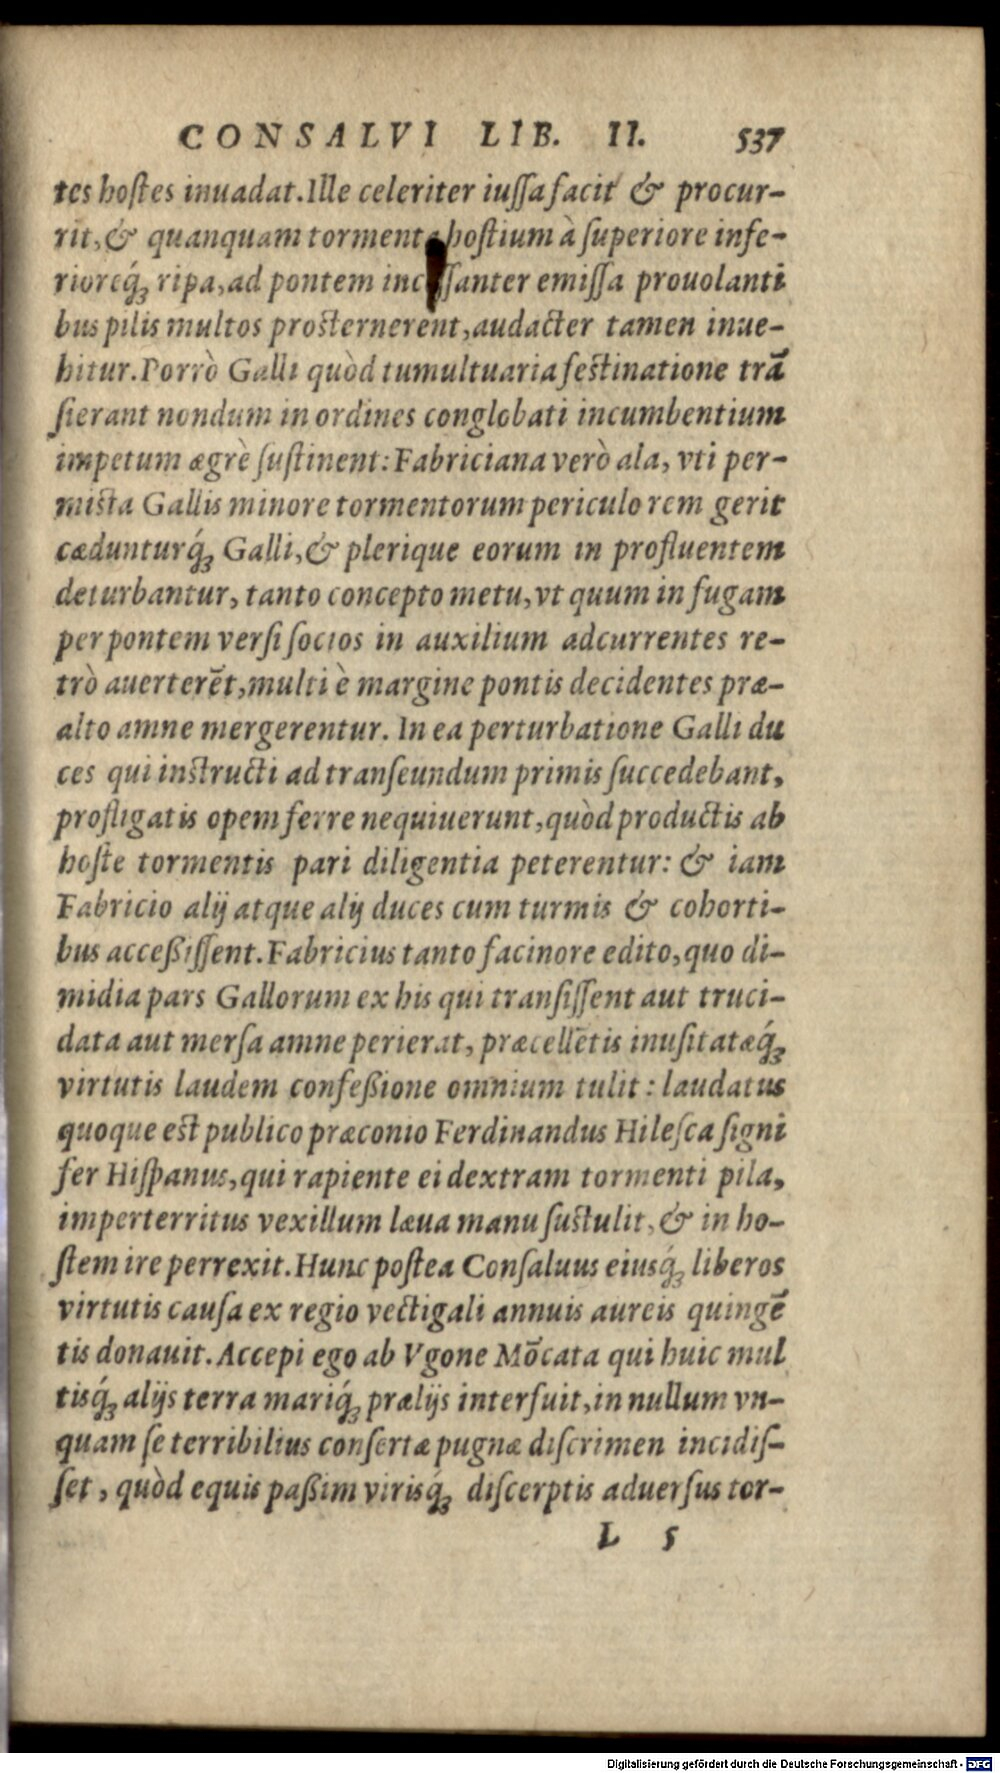 CONSALVI LIB. II. 537
tes hoſtes inuadat. Ille celeriter iuſſa facit & procur-
rit, & quanquam tormenta hoſtium à ſuperiore infe-
rioreq́ꝫ ripa, ad pontem inceſſanter emiſſa prouolanti
bus pilis multos proſternerent, audacter tamen inue-
hitur. Porrò Galli quòd tumultuaria feſtinatione trā
ſierant nondum in ordines conglobati incumbentium
impetum ægrè ſuſtinent: Fabriciana verò ala, vti per-
miſta Gallis minore tormentorum periculo rem gerit
cædunturq́ꝫ Galli, & plerique eorum in profluentem
deturbantur, tanto concepto metu, vt quum in fugam
per pontem verſi ſocios in auxilium adcurrentes re-
trò auerterēt, multi è margine pontis decidentes præ-
alto amne mergerentur. In ea perturbatione Galli du
ces qui inſtructi ad tranſeundum primis ſuccedebant,
profligatis opem ferre nequiuerunt, quòd productis ab
hoſte tormentis pari diligentia peterentur: & iam
Fabricio alij atque alij duces cum turmis & cohorti-
bus acceßiſſent. Fabricius tanto facinore edito, quo di-
midia pars Gallorum ex his qui tranſiſſent aut truci-
data aut merſa amne perierat, præcellētis inuſitatæq́ꝫ
virtutis laudem confeßione omnium tulit: laudatus
quoque eſt publico præconio Ferdinandus Hileſca ſigni
fer Hiſpanus, qui rapiente ei dextram tormenti pila,
imperterritus vexillum læua manu ſuſtulit, & in ho-
ſtem ire perrexit. Hunc poſtea Conſaluus eiusq́ꝫ liberos
virtutis cauſa ex regio vectigali annuis aureis quingē
tis donauit. Accepi ego ab Vgone Mōcata qui huic mul
tisq́ꝫ alijs terra mariq́ꝫ prælijs interfuit, in nullum vn-
quam ſe terribilius conſertæ pugnæ diſcrimen incidiſ-
ſet, quòd equis paßim virisq́ꝫ diſcerptis aduerſus tor-
L 5
Digitalisierung gefördert durch die Deutsche Forschungsgemeinschaft - DFG